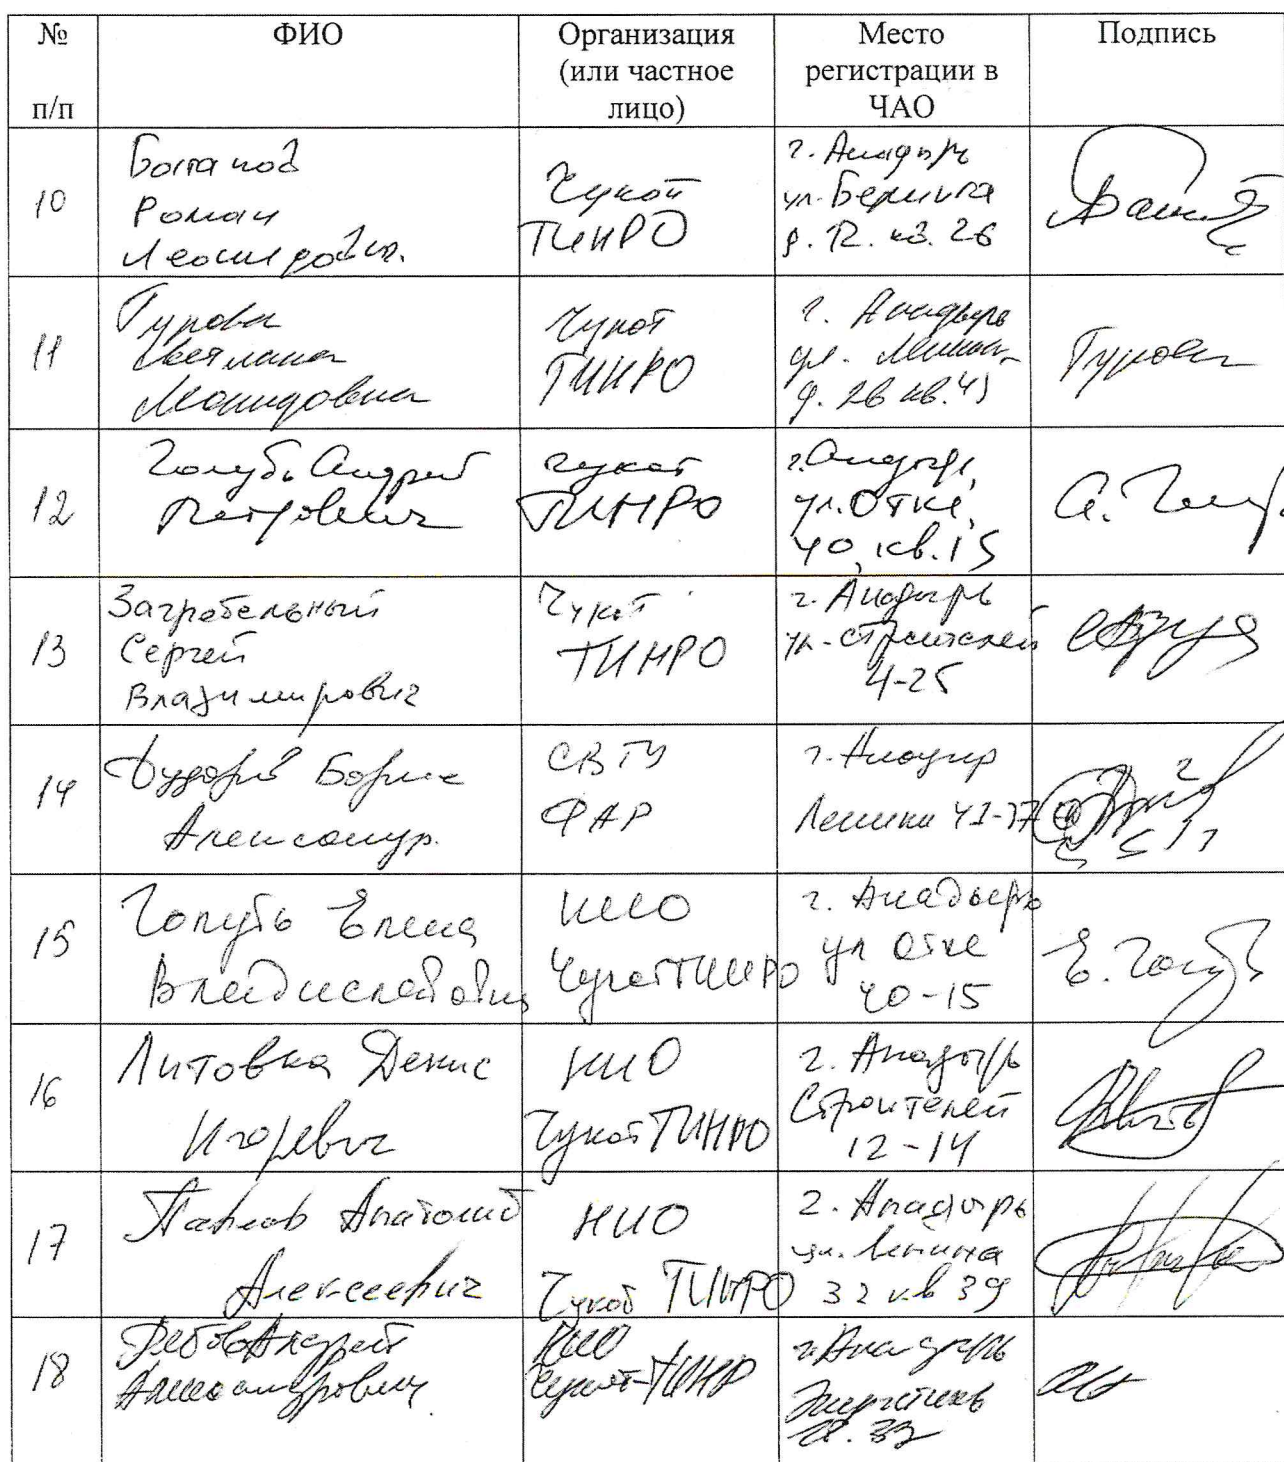 № п/п
ФИО
Организация (или частное лицо)
Место регистрации в ЧАО
Подпись
10
Роман
Чукот
ТИНРО
г. Анадырь
ул. Беринга
д. 12. кв. 26
11
Гунова
Светлана
Леонидовна
Чукот
ТИНРО
г. Анадырь
ул. Ленина
12
Голубь Андрей
Петрович
Чукот
ТИНРО
г. Анадырь,
ул. Отке,
40, кв. 15
А. Голубь
13
Загребельный
Сергей
Владимирович
Чукот
ТИНРО
г. Анадырь
ул. Строителей
4-25
14
Борис
Александр.
СВТУ
ФАР
г. Анадырь
Ленина
15
Голубь Елена
Владиславовна
НИО
ЧукотТИНРО
г. Анадырь
ул Отке
40-15
Е. Голубь
16
Литовка Денис
Игоревич
НИО
ЧукотТИНРО
г. Анадырь
Строителей
12-14
17
Анатолий
Алексеевич
НИО
Чукот ТИНРО
г. Анадырь
ул. Ленина
32 кв 39
18
Андрей
Александрович
НИО
Чукот-ТИНР
г. Анадырь